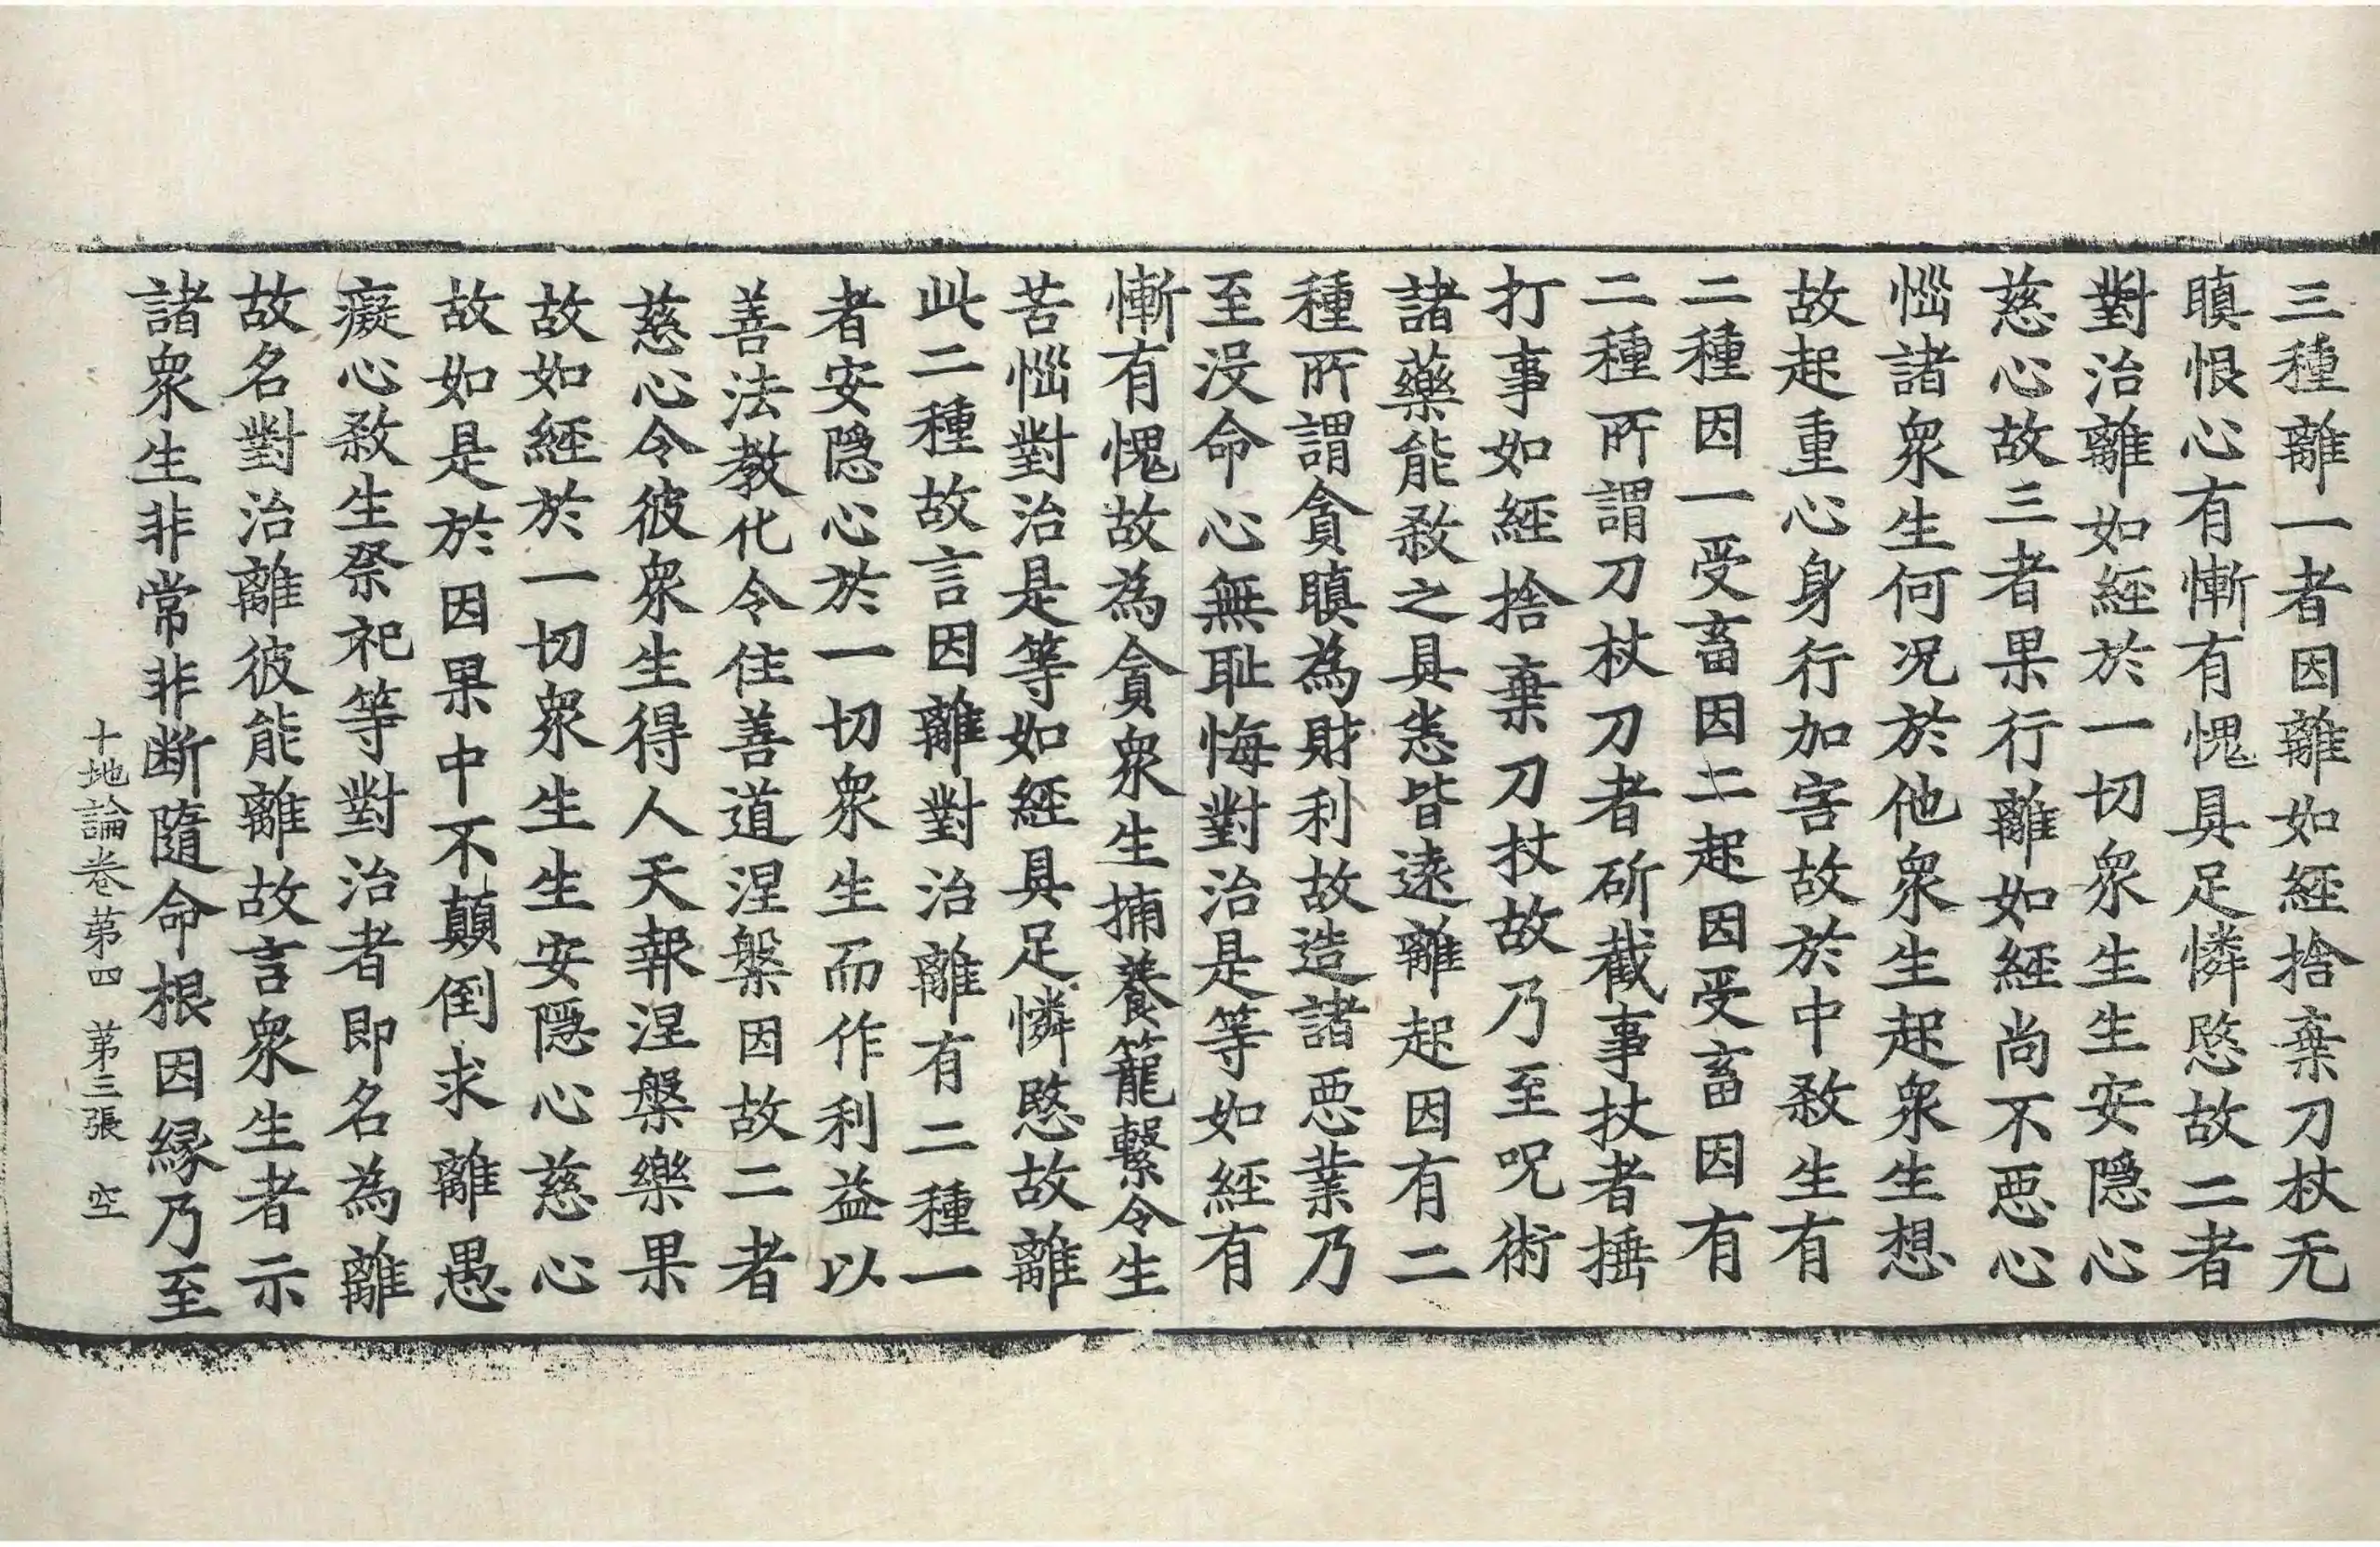 三種離一者因離如經捨棄刀杖无
瞋恨心有慚有愧具足憐愍故二者
對治離如經於一切衆生生安隱心
慈心故三者果行離如經尚不惡心
惱諸衆生何況於他衆生起衆生想
故起重心身行加害故於中殺生有
二種因一受畜因二起因受畜因有
二種所謂刀杖刀者斫截事杖者捶
打事如經捨棄刀杖故乃至呪術
諸藥能殺之具悉皆遠離起因有二
種所謂貪瞋為財利故造諸惡業乃
至没命心無耻悔對治是等如經有
慚有愧故為貪衆生捕養籠繫令生
苦惱對治是等如經具足憐愍故離
此二種故言因離對治離有二種一
者安隱心於一切衆生而作利益以
善法教化令住善道涅槃因故二者
慈心令彼衆生得人天報涅槃樂果
故如經於一切衆生生安隱心慈心
故如是於因果中不顛倒求離愚
癡心殺生祭祀等對治者即名為離
故名對治離彼能離故言衆生者示
諸衆生非常非断隨命根因緣乃至
十地論卷第四 第三張 空